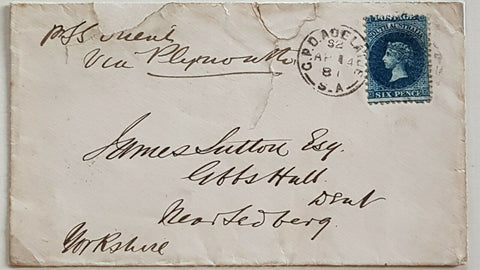 P SS Orient
Via Plymouth
G.P.O. ADELAIDE
S2
AP 14
81
S.A
POSTAGE
SOUTH AUSTRALIA
SIX PENCE
James Sutton Esq.
Gibbs Hall.
Dent
Near Sedberg.
Yorkshire